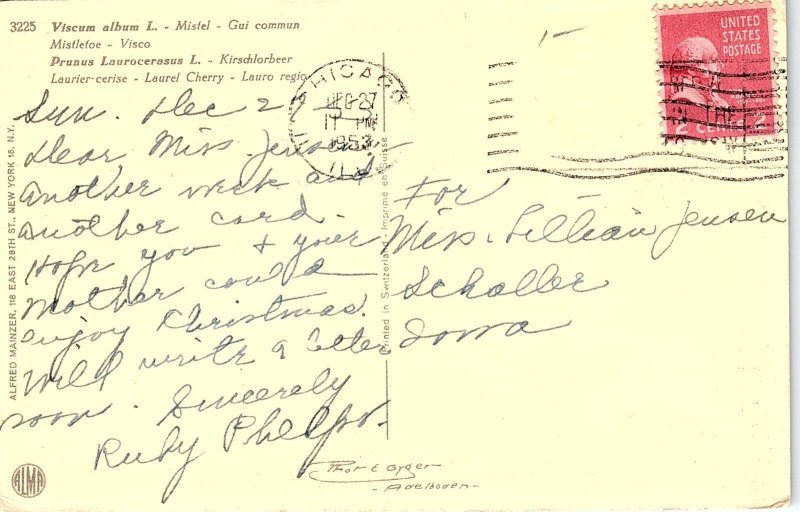 3225 Viscum album L. - Mistel - Gui commun
Mistletoe - Visco
Prunus Laurocerasus L. - Kirschlorbeer
Laurier-cerise - Laurel Cherry - Lauro regio
UNITED
STATES
POSTAGE
2 CENTS 2
CHICAGO
DEC 27
PM
1953
Sun. Dec 27
Dear Miss. Jensen
Another week and
another card.
Hope you & your
Mother could
enjoy Christmas.
Will write a letter
soon. Sincerely
Ruby Phelps.
For
Miss. Lillian Jensen
Schaller
Iowa
ALFRED MAINZER, 118 EAST 28TH ST., NEW YORK 16, N.Y.
Printed in Switzerland - Imprimé en Suisse
ALMA
- Adelboden -